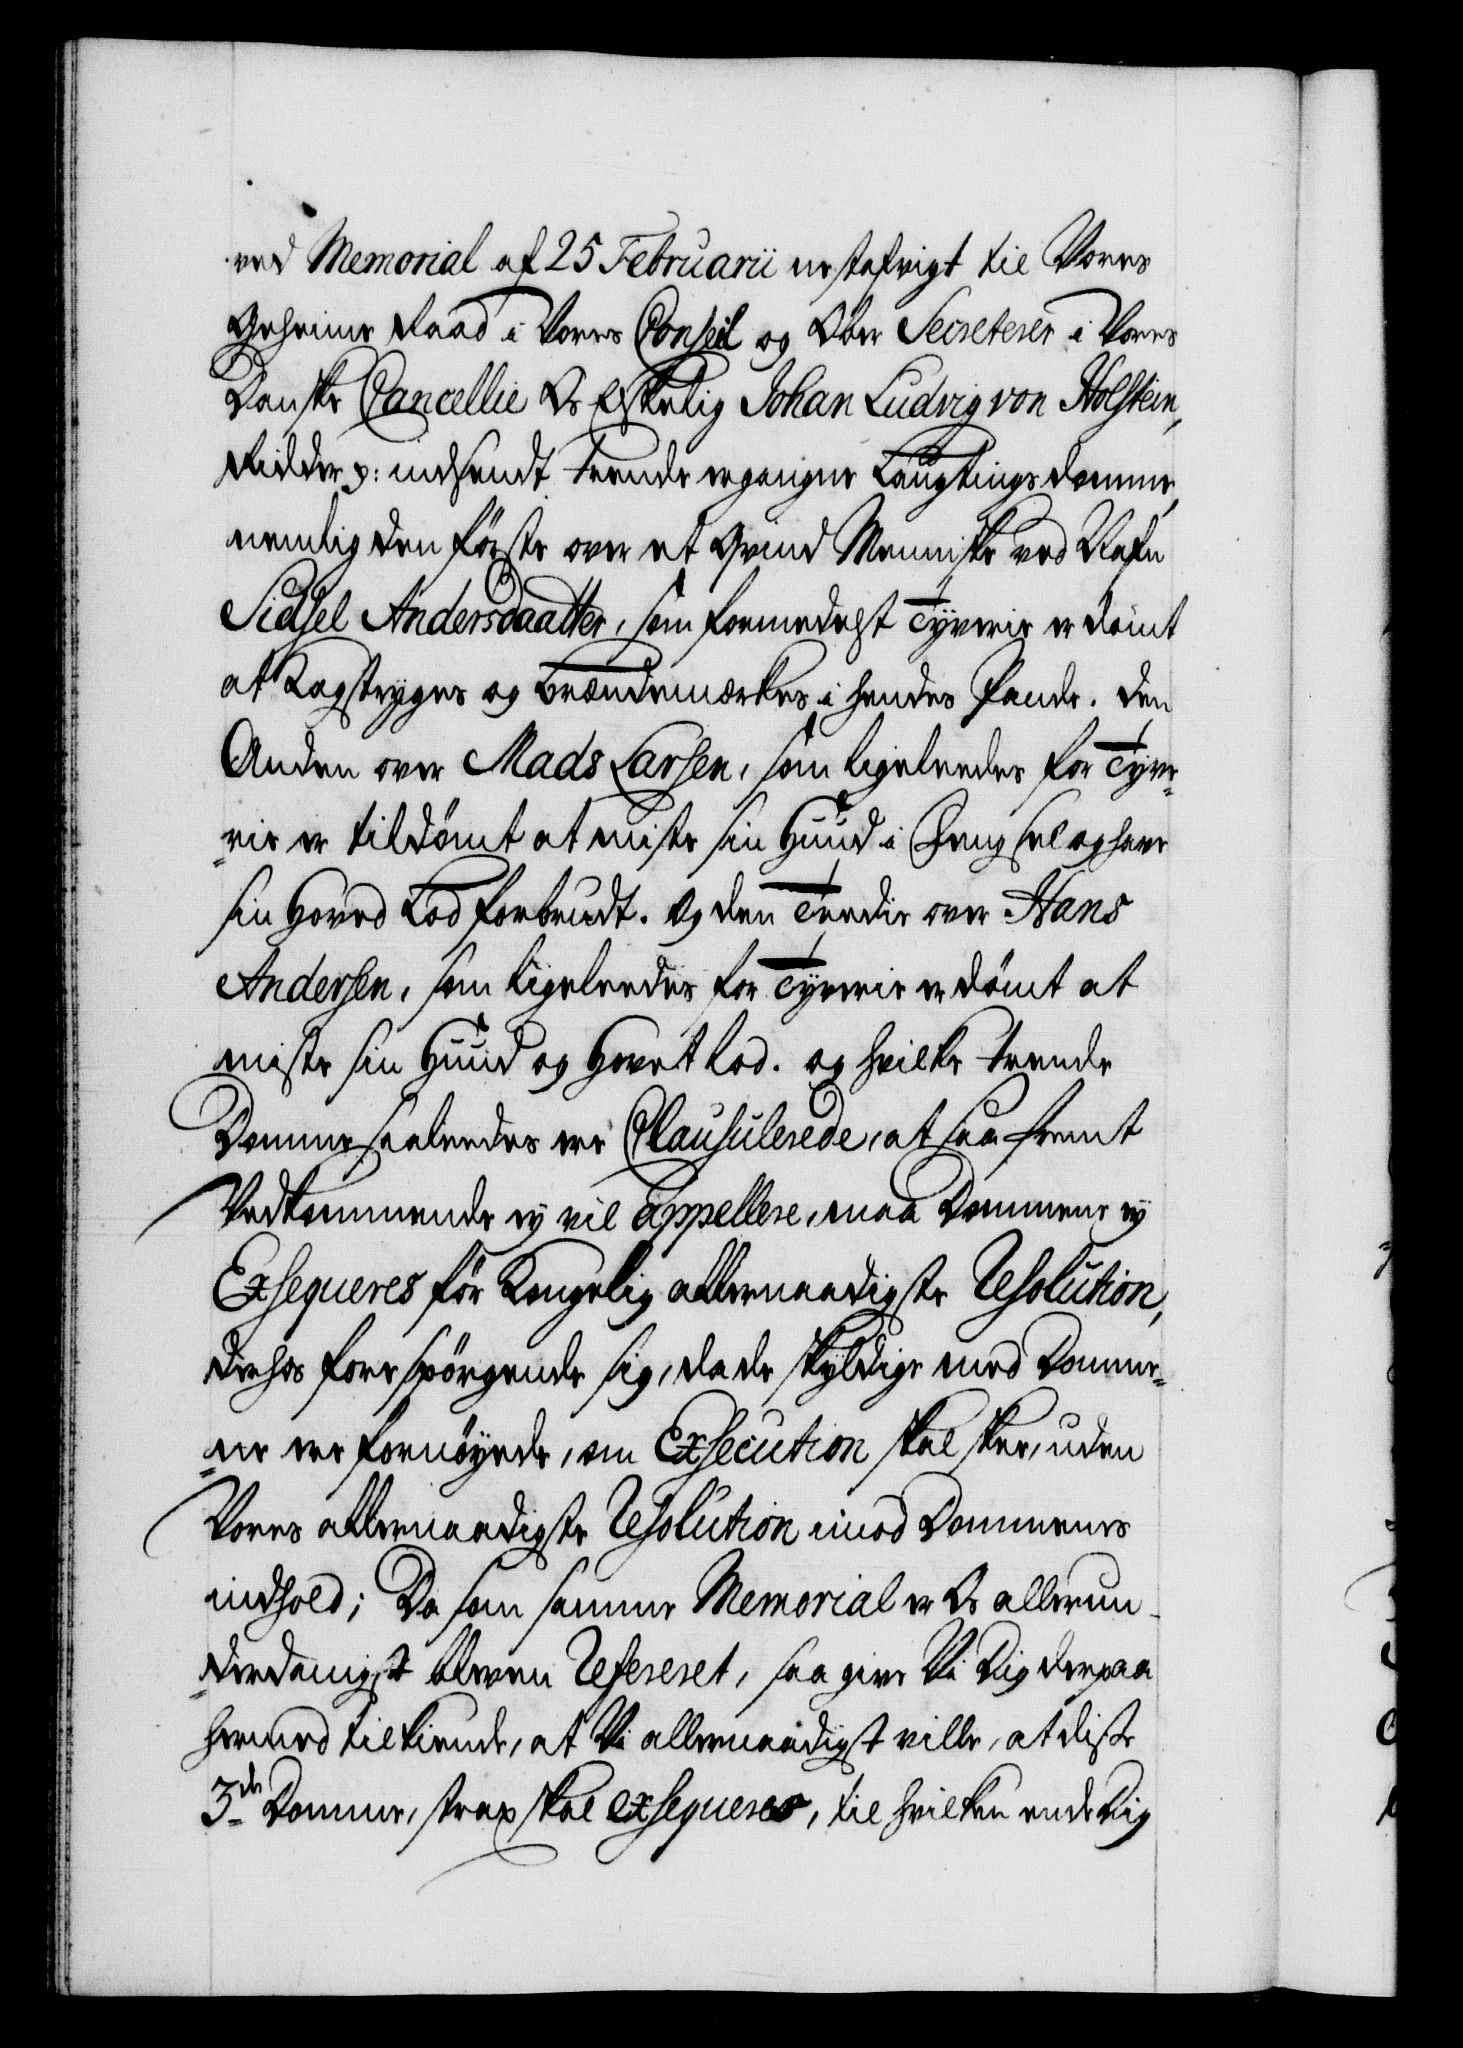 ved Memorial af 25 Februarii nestafvigt til Vores
Geheime Raad i Vores Conseil og Ober Secreterer i Vores
Danske Cancellie Os Elskelig Johan Ludvig von Holstein,
Ridder p: indsendt trende ergangne Laugtings Domme,
nemlig den förste over et Qvind Menniske ved Nafn
Sidsel Andersdaatter, som formedelst Tyverie er dömt
at Kagstryges og Brændemærkes i hendes Pande. Den
Anden over Mads Larsen, som ligeleedes for Tyve-
-rie er tildömt at miste sin Huud i Fengsel og have
sin Hoved Lod forbrudt. Og den Tredie over Hans
Andersen, som ligeleedes for Tyverie er dömt at
miste sin Huud og Hovet Lod. og hvilke trende
Domme saaleedes ere Clausulerede, at saafremt
Vedkommende ey vil appellere, maa Dommene ey
Exsequeres för Kongelig allernaadigste Resolution,
derhos forespörgende sig, da de skyldige med Domme-
-ne ere fornöyede, om Exsecution skal skee, uden
Vores allernaadigste Resolution imod Dommenes
indhold; Da som samme Memorial er Os allerun-
-derdanigst bleven Refereret, saa give Vi Dig derpaa
hermed tilkiende, at Vi allernaadigst ville, at diste
3de Domme, strax skal exsequeres, til hvilken ende Dig